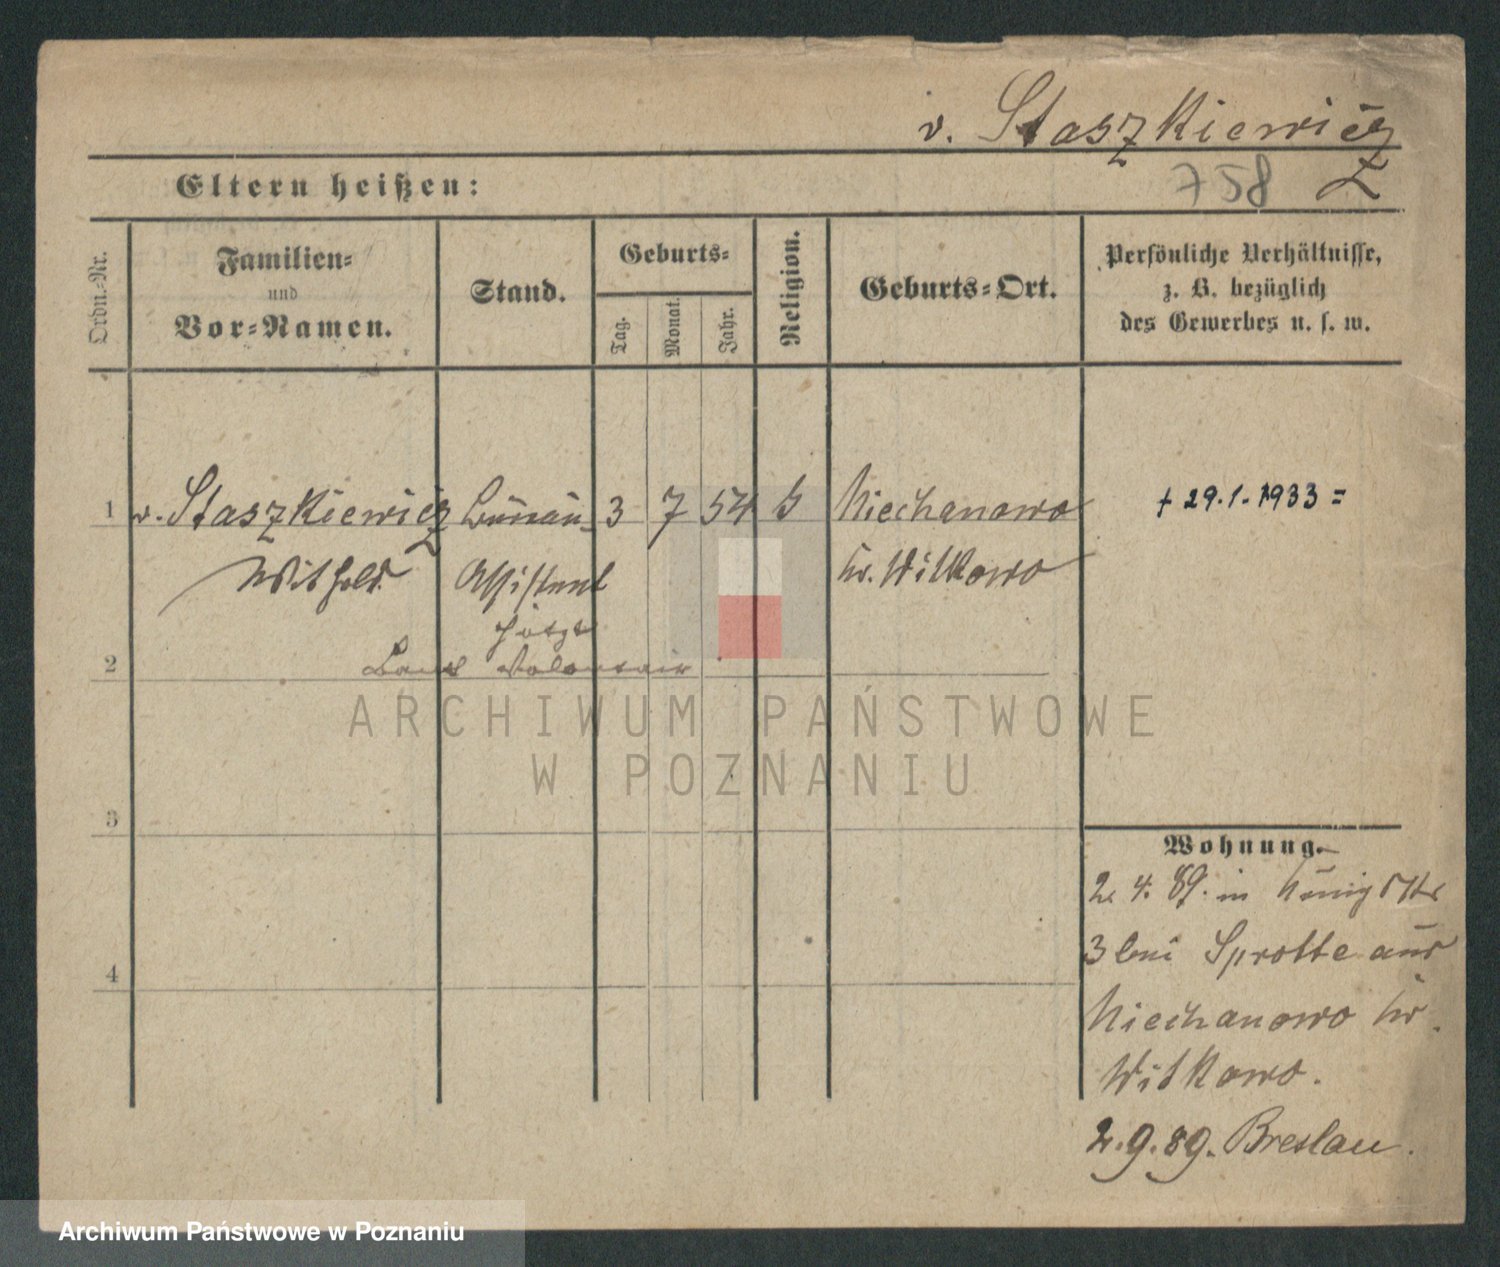 v. Staszkiewicz
Eltern heißen:
758 Z
Ordn.-Nr.
Familien-
und
Vor-Namen.
Stand.
Geburts-
Tag.
Monat.
Jahr.
Religion.
Geburts-Ort.
Persönliche Verhältnisse,
z. B. bezüglich
des Gewerbes u. s. w.
1 v. Staszkiewicz Büreau- 3 7 54 Niechanowo † 29.1.1933 =
Withold Assistent Kr. Witkowo
jetzt
2 Bank Volontair
3
4
Wohnung.
2. 4. 89. in Königstr
3 bei Sprotte aus
Niechanowo Kr.
Witkowo.
2.9.89. Breslau.
ARCHIWUM PAŃSTWOWE
W POZNANIU
Archiwum Państwowe w Poznaniu